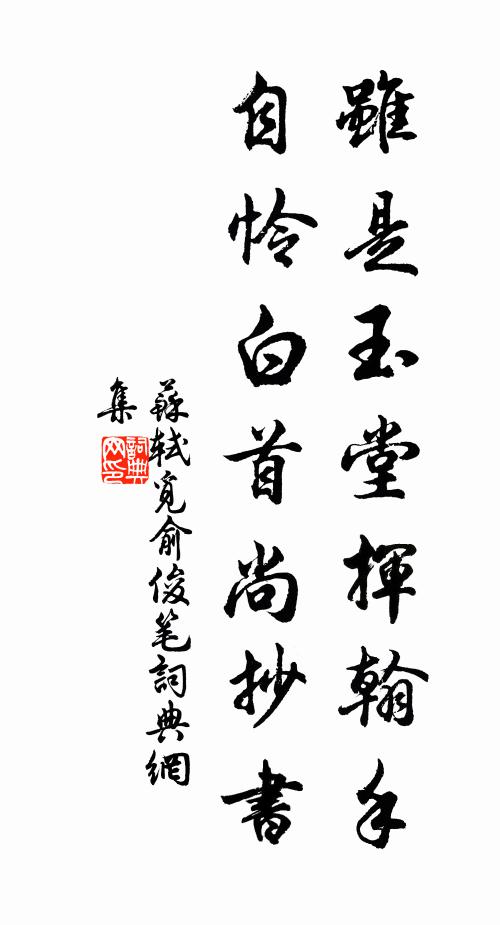 雖是玉堂揮翰手
自怜白首尚抄書
蘇軾覓俞俊笔詞典網
集
詞典網印